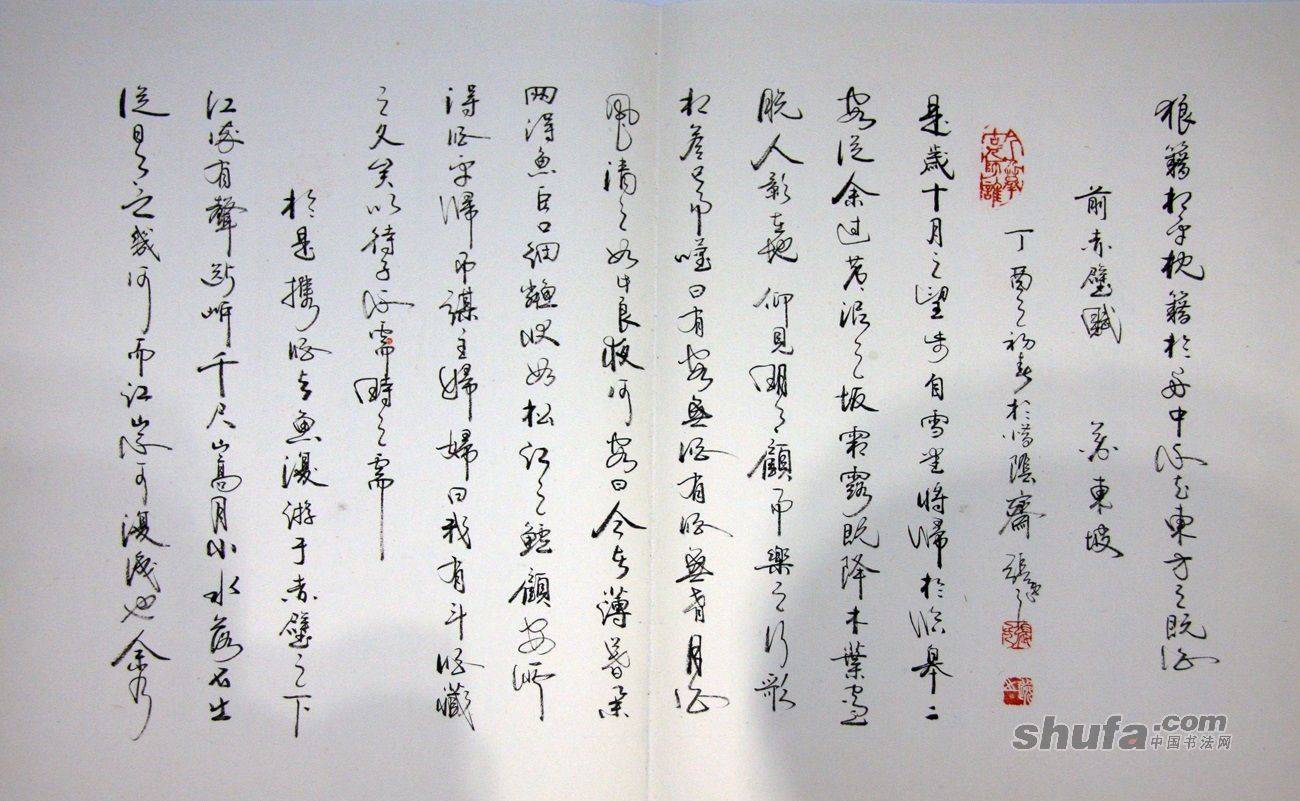 狼籍相與枕籍於舟中不知東方之既白
前赤壁賦 蘇東坡
丁酉之初春於惜陰齋 張
是歲十月之望步自雪堂將歸於臨皋二
客從余過黃泥之坂霜露既降木葉盡
脫人影在地仰見明月顧而樂之行歌
相答已而嘆曰有客無酒有酒無肴月白
風清之如此良夜何客曰今者薄暮舉
网得魚巨口細鱗狀如松江之鱸顧安所
得酒乎歸而謀主婦婦曰我有斗酒藏
之久矣以待子不需時之需
於是攜酒與魚復游于赤壁之下
江流有聲斷岸千尺山高月小水落石出
從日月之幾何而江山不可復識也余乃
shufa.com
中国书法网